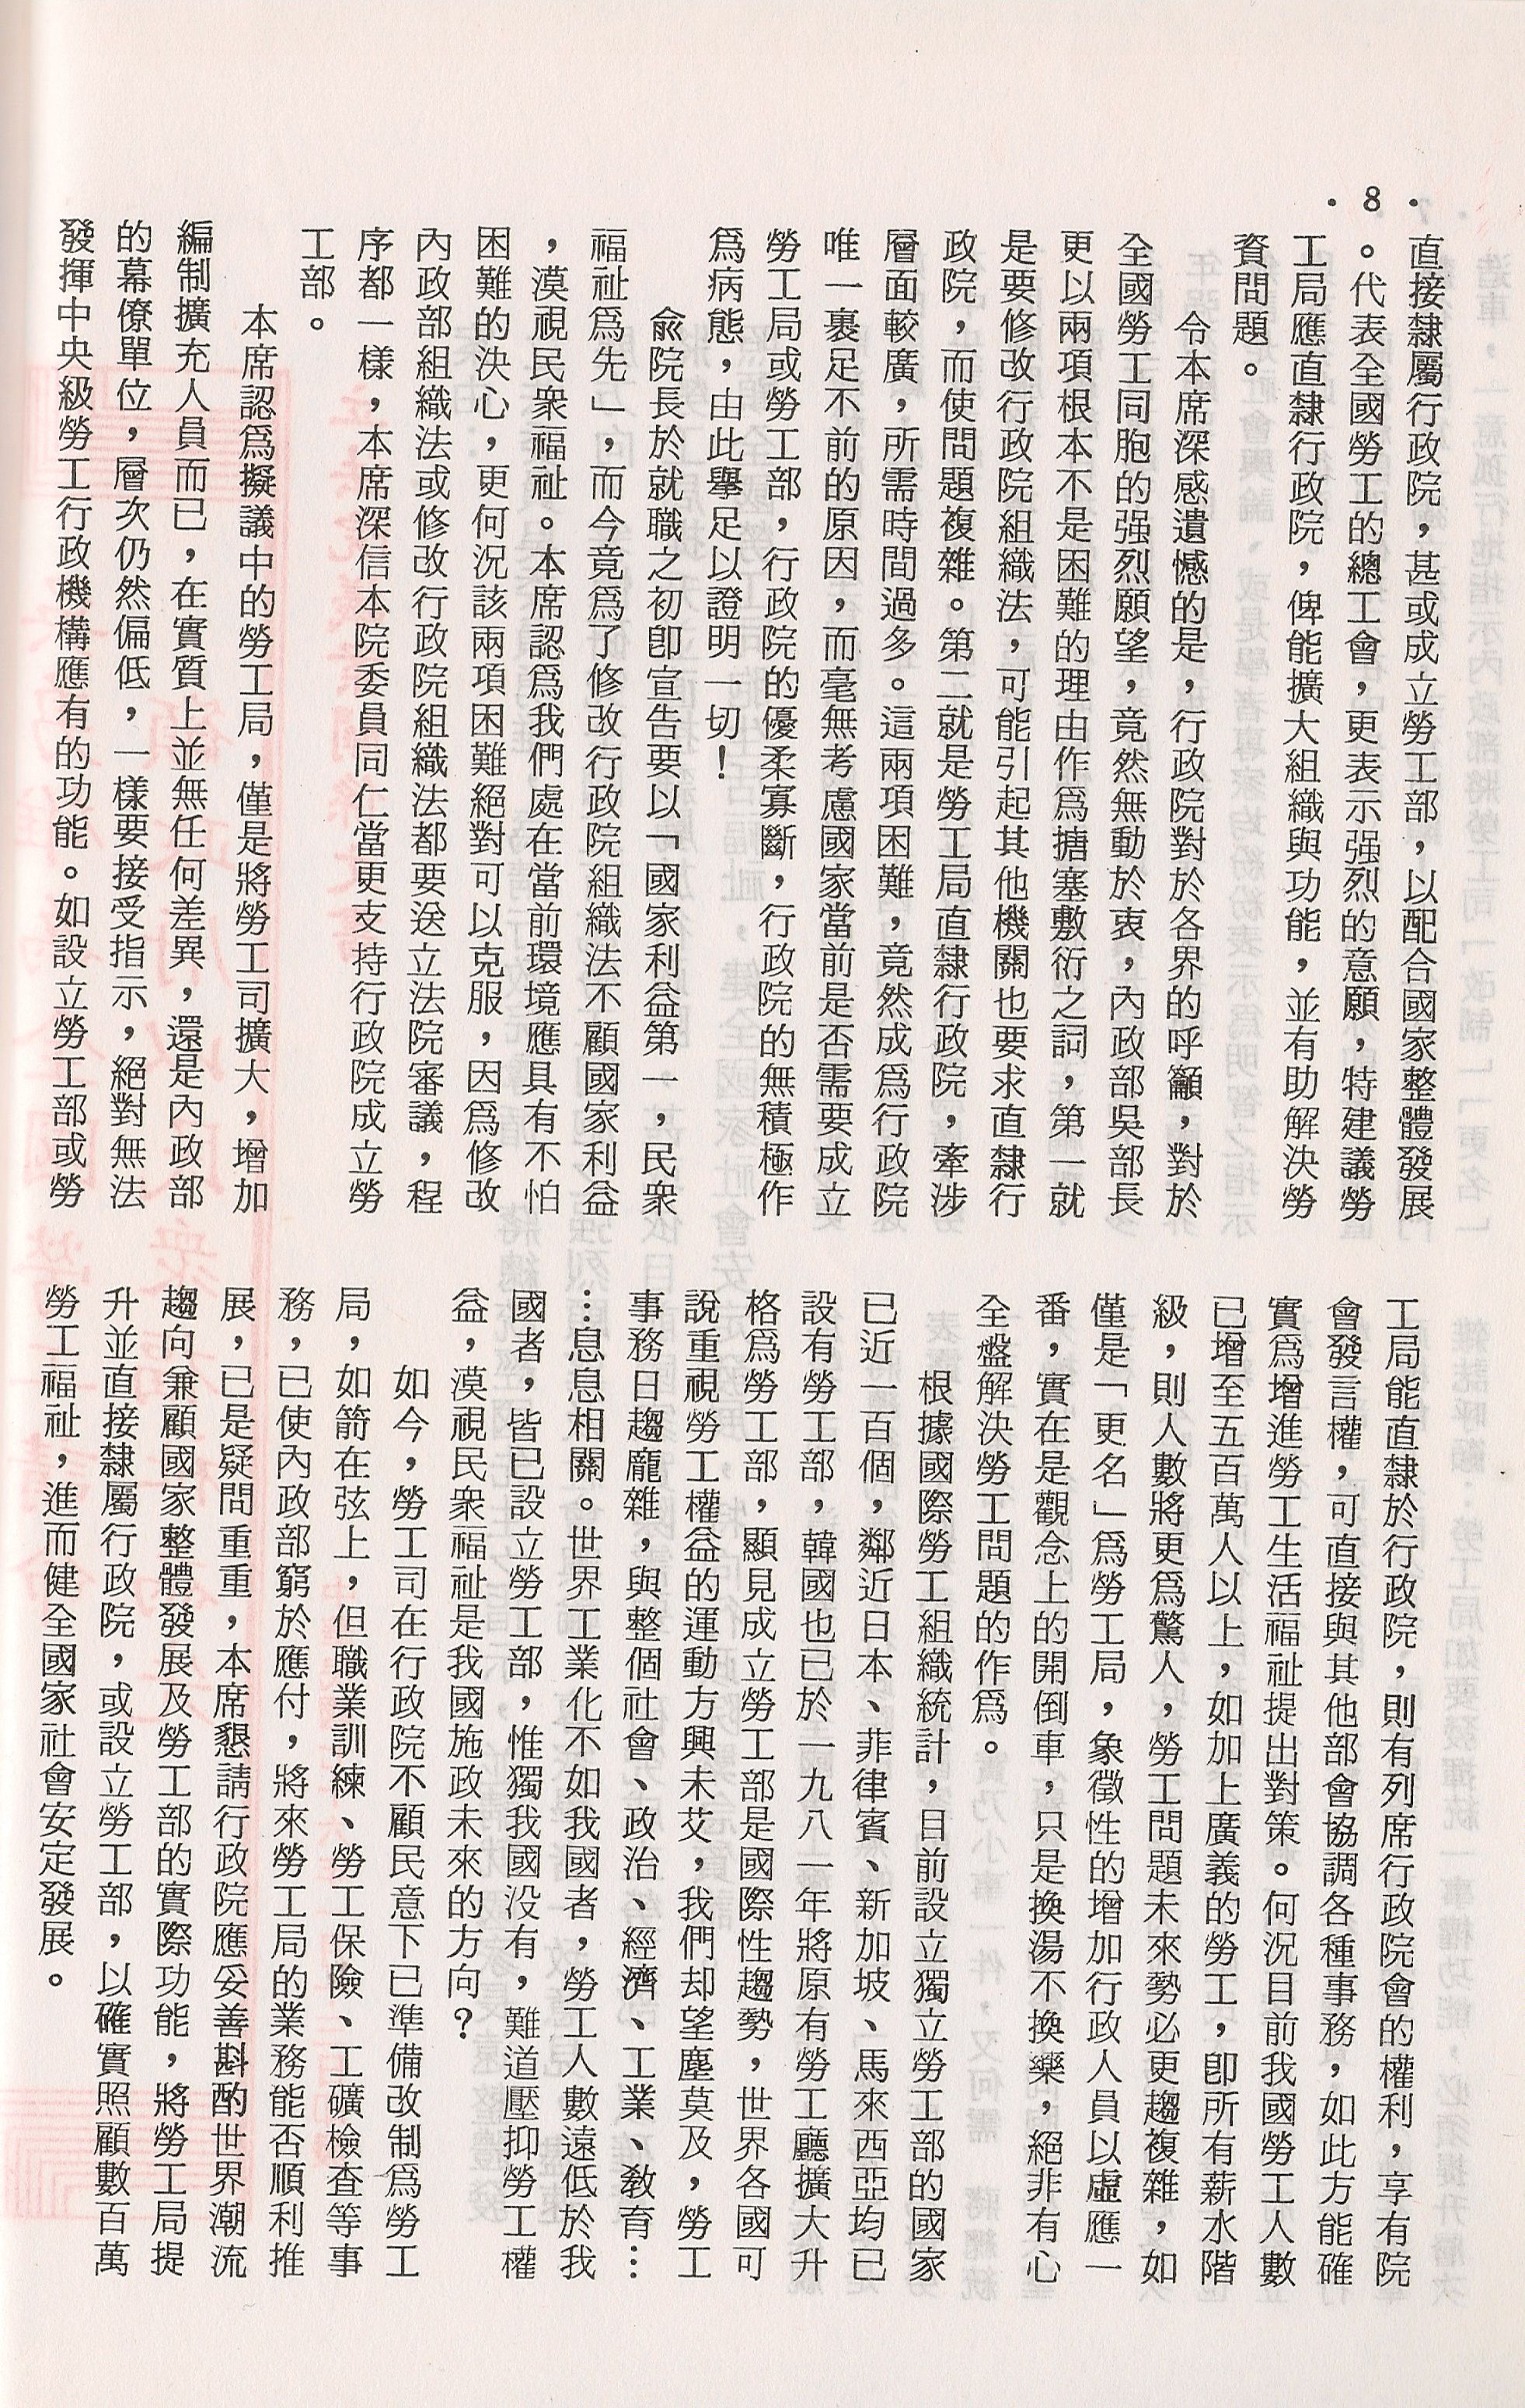 ·8·
直接隸屬行政院，甚或成立勞工部，以配合國家整體發展
。代表全國勞工的總工會，更表示强烈的意願，特建議勞
工局應直隸行政院，俾能擴大組織與功能，並有助解決勞
資問題。
令本席深感遺憾的是，行政院對於各界的呼籲，對於
全國勞工同胞的强烈願望，竟然無動於衷，內政部吳部長
更以兩項根本不是困難的理由作爲搪塞敷衍之詞，第一就
是要修改行政院組織法，可能引起其他機關也要求直隸行
政院，而使問題複雜。第二就是勞工局直隸行政院，牽涉
層面較廣，所需時間過多。這兩項困難，竟然成爲行政院
唯一裹足不前的原因，而毫無考慮國家當前是否需要成立
勞工局或勞工部，行政院的優柔寡斷，行政院的無積極作
爲病態，由此舉足以證明一切！
兪院長於就職之初卽宣告要以「國家利益第一，民衆
福祉爲先」，而今竟爲了修改行政院組織法不顧國家利益
，漠視民衆福祉。本席認爲我們處在當前環境應具有不怕
困難的決心，更何況該兩項困難絕對可以克服，因爲修改
內政部組織法或修改行政院組織法都要送立法院審議，程
序都一樣，本席深信本院委員同仁當更支持行政院成立勞
工部。
本席認爲擬議中的勞工局，僅是將勞工司擴大，增加
編制擴充人員而已，在實質上並無任何差異，還是內政部
的幕僚單位，層次仍然偏低，一樣要接受指示，絕對無法
發揮中央級勞工行政機構應有的功能。如設立勞工部或勞
工局能直隸於行政院，則有列席行政院會的權利，享有院
會發言權，可直接與其他部會協調各種事務，如此方能確
實爲增進勞工生活福祉提出對策。何況目前我國勞工人數
已增至五百萬人以上，如加上廣義的勞工，卽所有薪水階
級，則人數將更爲驚人，勞工問題未來勢必更趨複雜，如
僅是「更名」爲勞工局，象徵性的增加行政人員以虛應一
番，實在是觀念上的開倒車，只是換湯不換藥，絕非有心
全盤解決勞工問題的作爲。
根據國際勞工組織統計，目前設立獨立勞工部的國家
已近一百個，鄰近日本、菲律賓、新加坡、馬來西亞均已
設有勞工部，韓國也已於一九八一年將原有勞工廳擴大升
格爲勞工部，顯見成立勞工部是國際性趨勢，世界各國可
說重視勞工權益的運動方興未艾，我們却望塵莫及，勞工
事務日趨龐雜，與整個社會、政治、經濟、工業、敎育…
…息息相關。世界工業化不如我國者，勞工人數遠低於我
國者，皆已設立勞工部，惟獨我國没有，難道壓抑勞工權
益，漠視民衆福祉是我國施政未來的方向？
如今，勞工司在行政院不顧民意下已準備改制爲勞工
局，如箭在弦上，但職業訓練、勞工保險、工礦檢査等事
務，已使內政部窮於應付，將來勞工局的業務能否順利推
展，已是疑問重重，本席懇請行政院應妥善斟酌世界潮流
趨向兼顧國家整體發展及勞工部的實際功能，將勞工局提
升並直接隸屬行政院，或設立勞工部，以確實照顧數百萬
勞工福祉，進而健全國家社會安定發展。